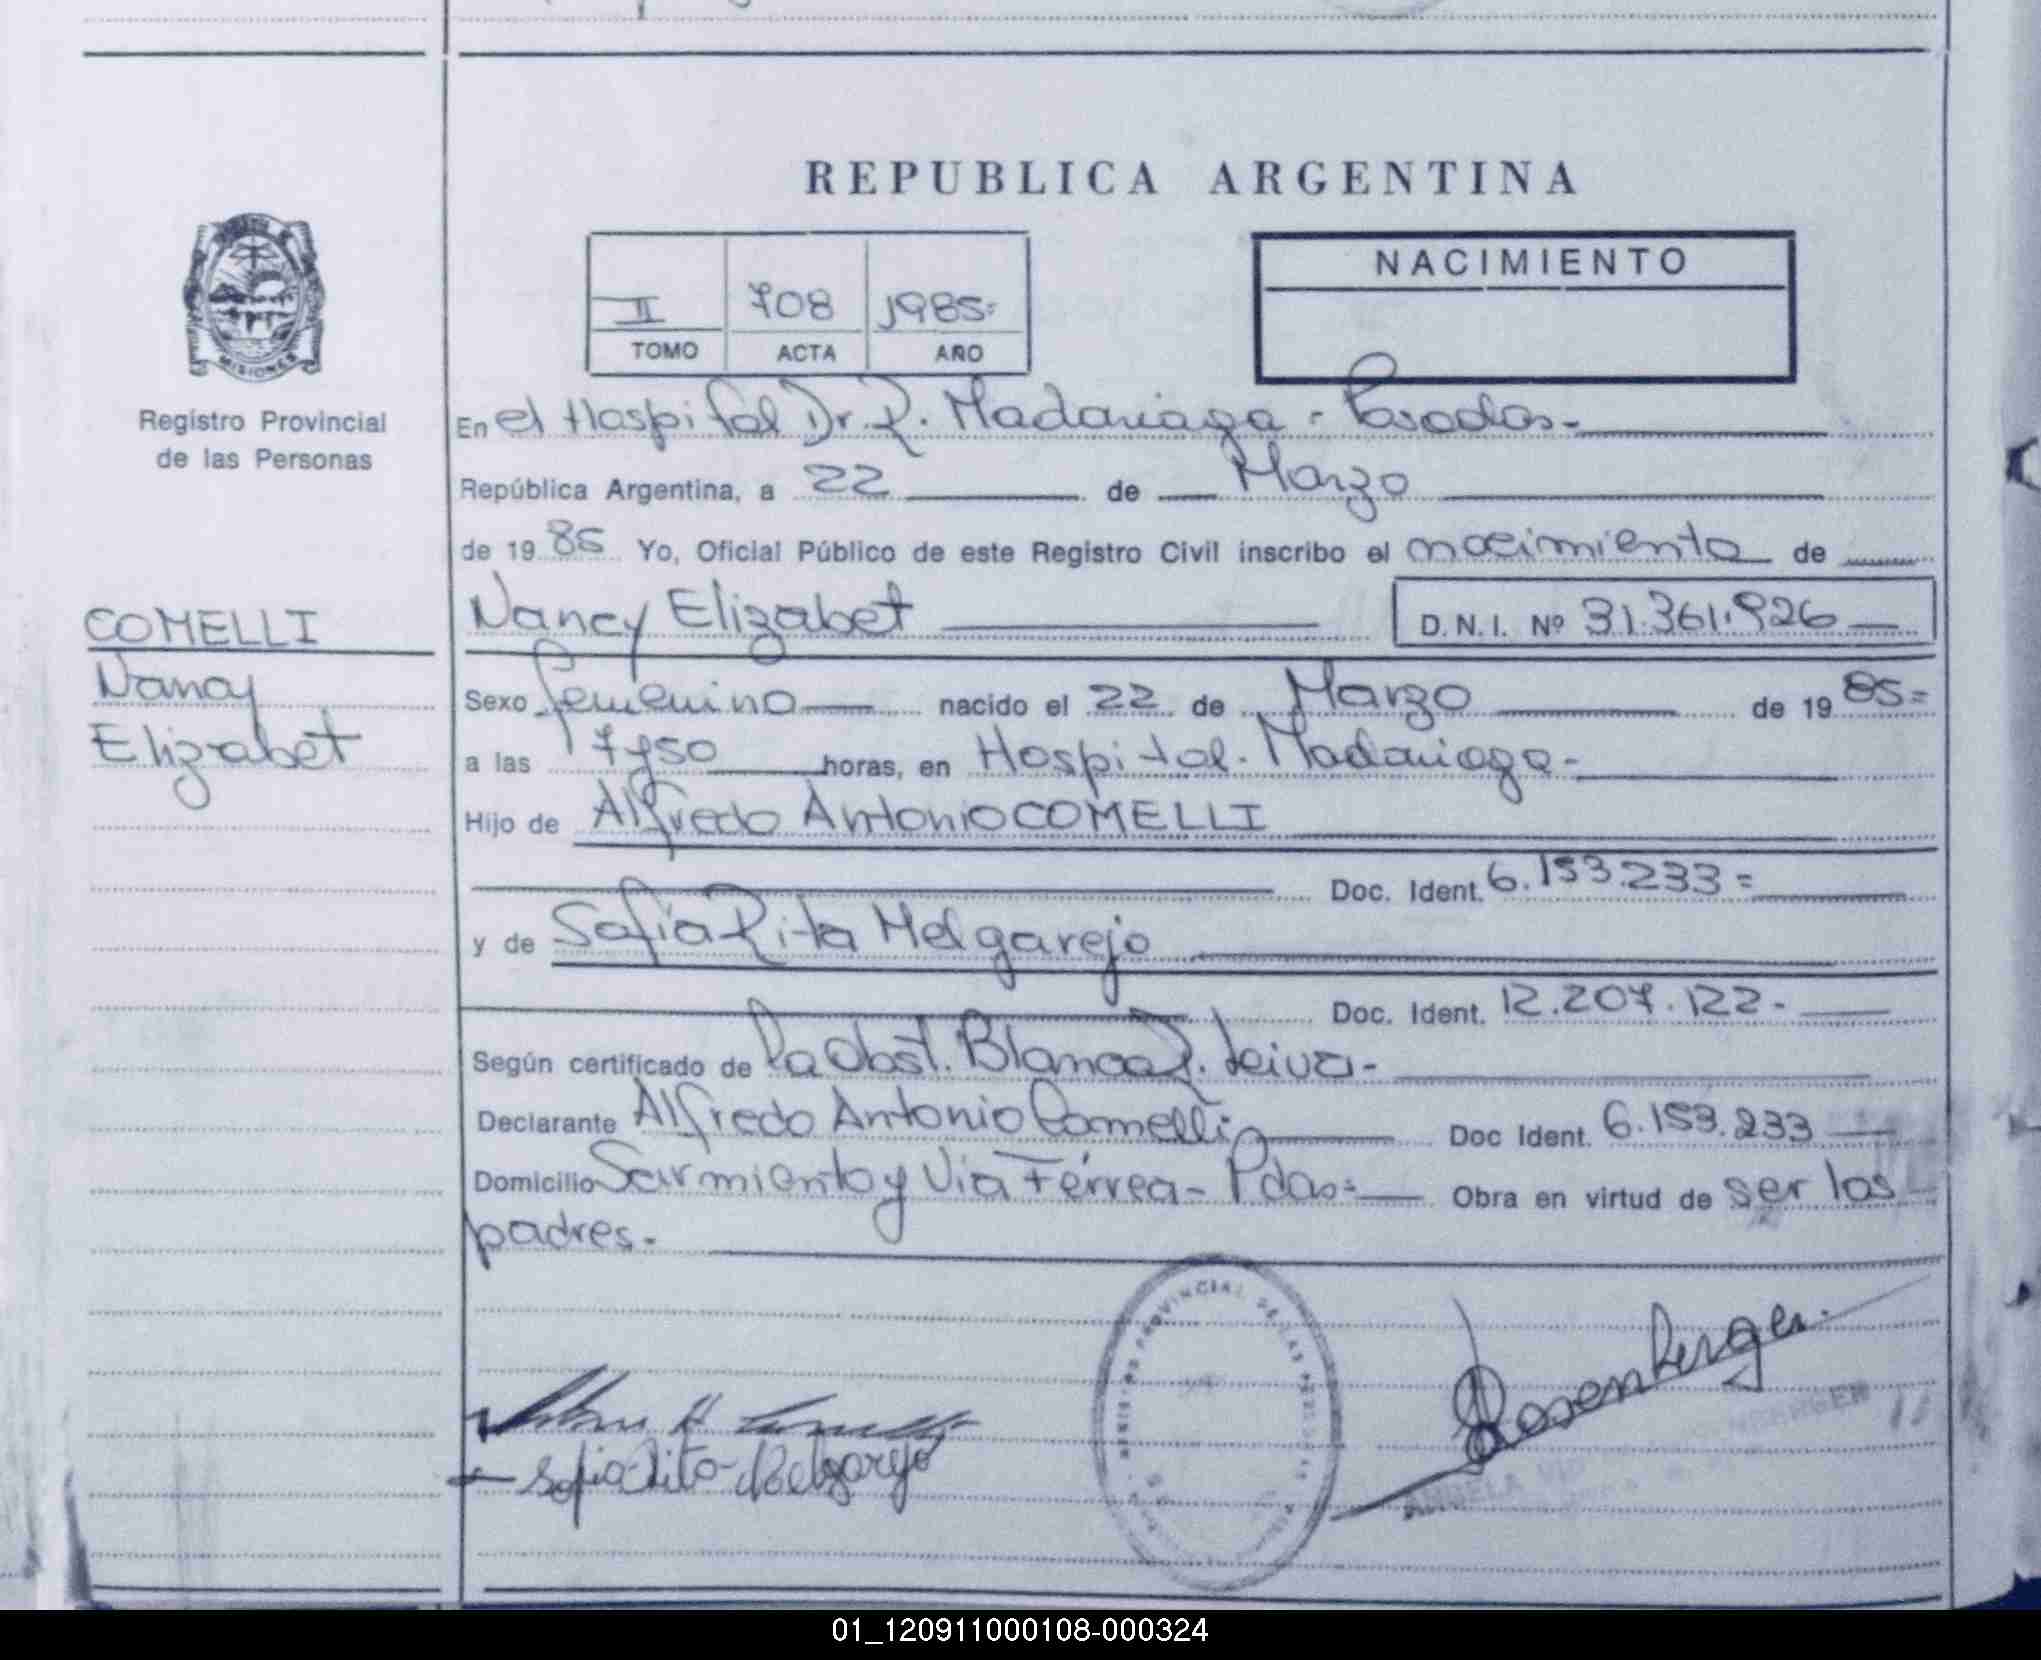 REPUBLICA ARGENTINA
NACIMIENTO
II 708 1985=
TOMO ACTA AÑO
MISIONES
Registro Provincial
de las Personas
COMELLI
Nancy
Elizabet
En el Hospital Dr. R. Madariaga - Posadas-
República Argentina, a 22 de Marzo
de 1985 Yo, Oficial Público de este Registro Civil inscribo el nacimiento de
Nancy Elizabet D.N.I. Nº 31.361.926
Sexo femenino nacido el 22 de Marzo de 1985=
a las 7 y 50 horas, en Hospital. Madariaga-
Hijo de Alfredo Antonio COMELLI
Doc. Ident. 6.153.233=
y de Sofía Rita Melgarejo
Doc. Ident. 12.207.122-
Según certificado de la Obst. Blanca R. Leiva-
Declarante Alfredo Antonio Comelli Doc Ident. 6.153.233
Domicilio Sarmiento y Vía Férrea - Pdas= Obra en virtud de ser los
padres.-
PROVINCIAL DE LAS PERSONAS
Sofia Rita Melgarejo
Rosenberger
ANGELA
01_120911000108-000324